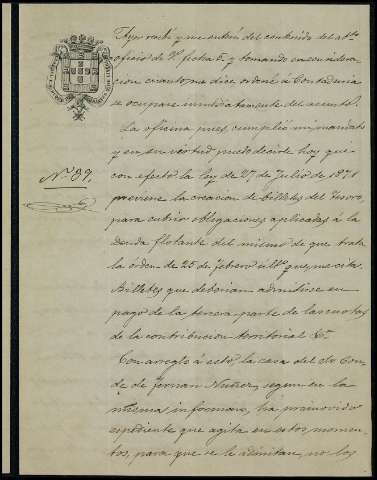 Ayer recibí y me enteré del contenido del atto
oficio de V. fecha 5, y tomando en considera-
cion cuanto me dice ordené á Contaduria
se ocupase inmediatamente del asunto.
La oficina pues, cumplió mi mandato
y en su virtud puedo decirle hoy que
Nº 89.
con efecto la ley de 27 de Julio de 1871
previene la creacion de billetes del Tesoro,
para cubrir obligaciones aplicadas á la
deuda flotante del mismo de que trata
la órden de 25 de febrero últº que me cita.
Billetes que deberian admitirse en
pago de la tercera parte de las cuotas
de la contribucion territorial &ª
Con arreglo á esto, la casa del Sr. Con-
de de Fernan Nuñez, segun en la
misma informan, há promovido
espediente que agita en estos momen-
tos, para que se le admitan, no los